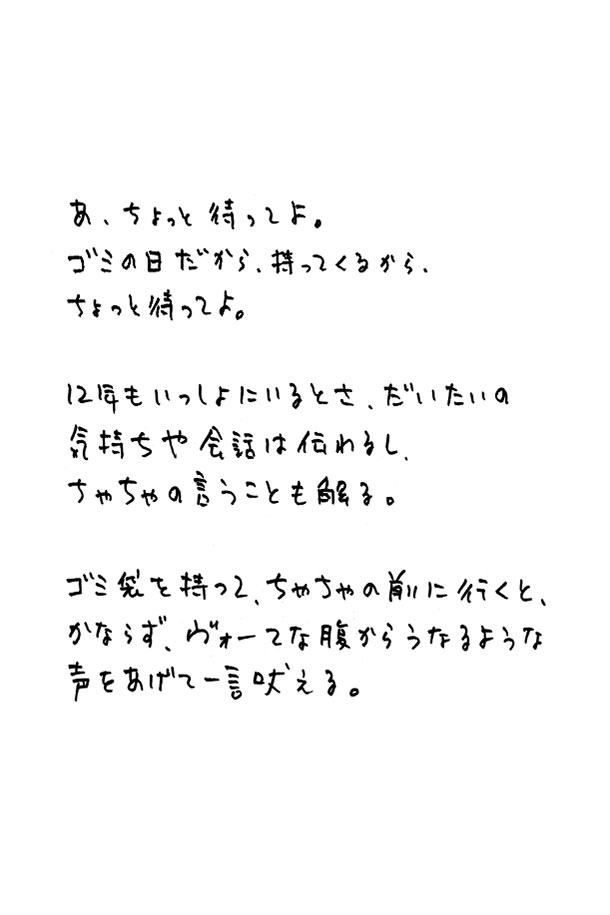 あ、ちょっと待ってよ。
ゴミの日だから、持ってくるから、
ちょっと待ってよ。
12年もいっしょにいるとさ、だいたいの
気持ちや会話は伝わるし、
ちゃちゃの言うことも解る。
ゴミ袋を持って、ちゃちゃの前に行くと、
かならず、ヴォーてな腹からうなるような
声をあげて一言吠える。